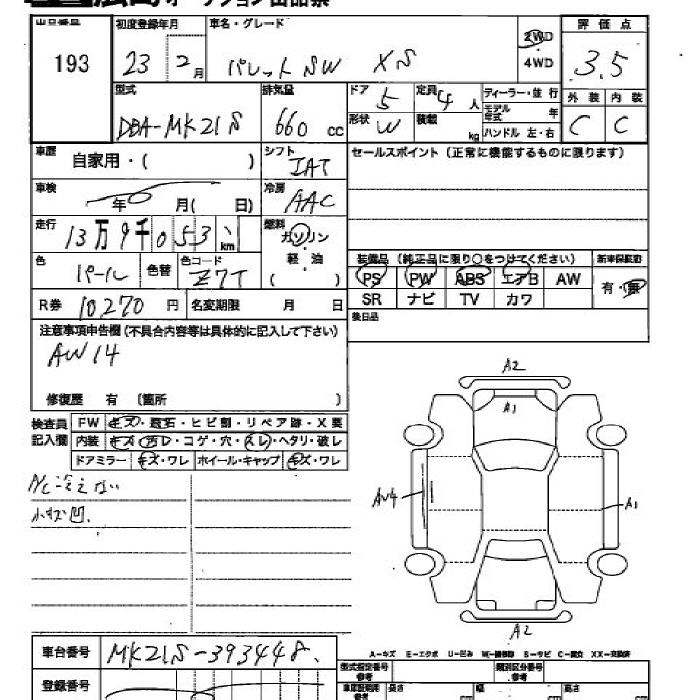 広島オークション出品票
出品番号 初度登録年月 車名・グレード 評価点
193 23 2月 パレットSW XS 2WD 3.5
4WD
型式 排気量 ドア 5 定員 4人 ディーラー・並行 外装 内装
DBA-MK21S 660cc 形状 W 積載 kg モデル年式 年 C C
ハンドル 左・右
車歴 自家用・( ) シフト IAT セールスポイント(正常に機能するものに限ります)
車検 年 月( 日) 冷房 AAC
走行 13万9千053km 燃料 ガソリン
軽油
色 パール 色替 色コード Z7T 装備品(純正品に限り○をつけてください) 新車保証書
PS PW ABS エアB AW 有・無
R券 10270円 名変期限 月 日 SR ナビ TV カワ
注意事項申告欄(不具合内容等は具体的に記入して下さい) 後日品
AW14
修復歴 有 〔箇所 〕
検査員 FW キズ・飛石・ヒビ割・リペア跡・X要
記入欄 内装 キズ・汚レ・コゲ・穴・スレ・ヘタリ・破レ
ドアミラー キズ・ワレ ホイール・キャップ キズ・ワレ
A/C冷えない
小キズ凹.
A2
A1
AW4
A1
A2
A-キズ E-エクボ U-凹み W-補修跡 S-サビ C-腐食 XX-交換済
車台番号 MK21S-393448.
登録番号
型式指定番号 類別区分番号
長さ cm 幅 cm 高さ cm